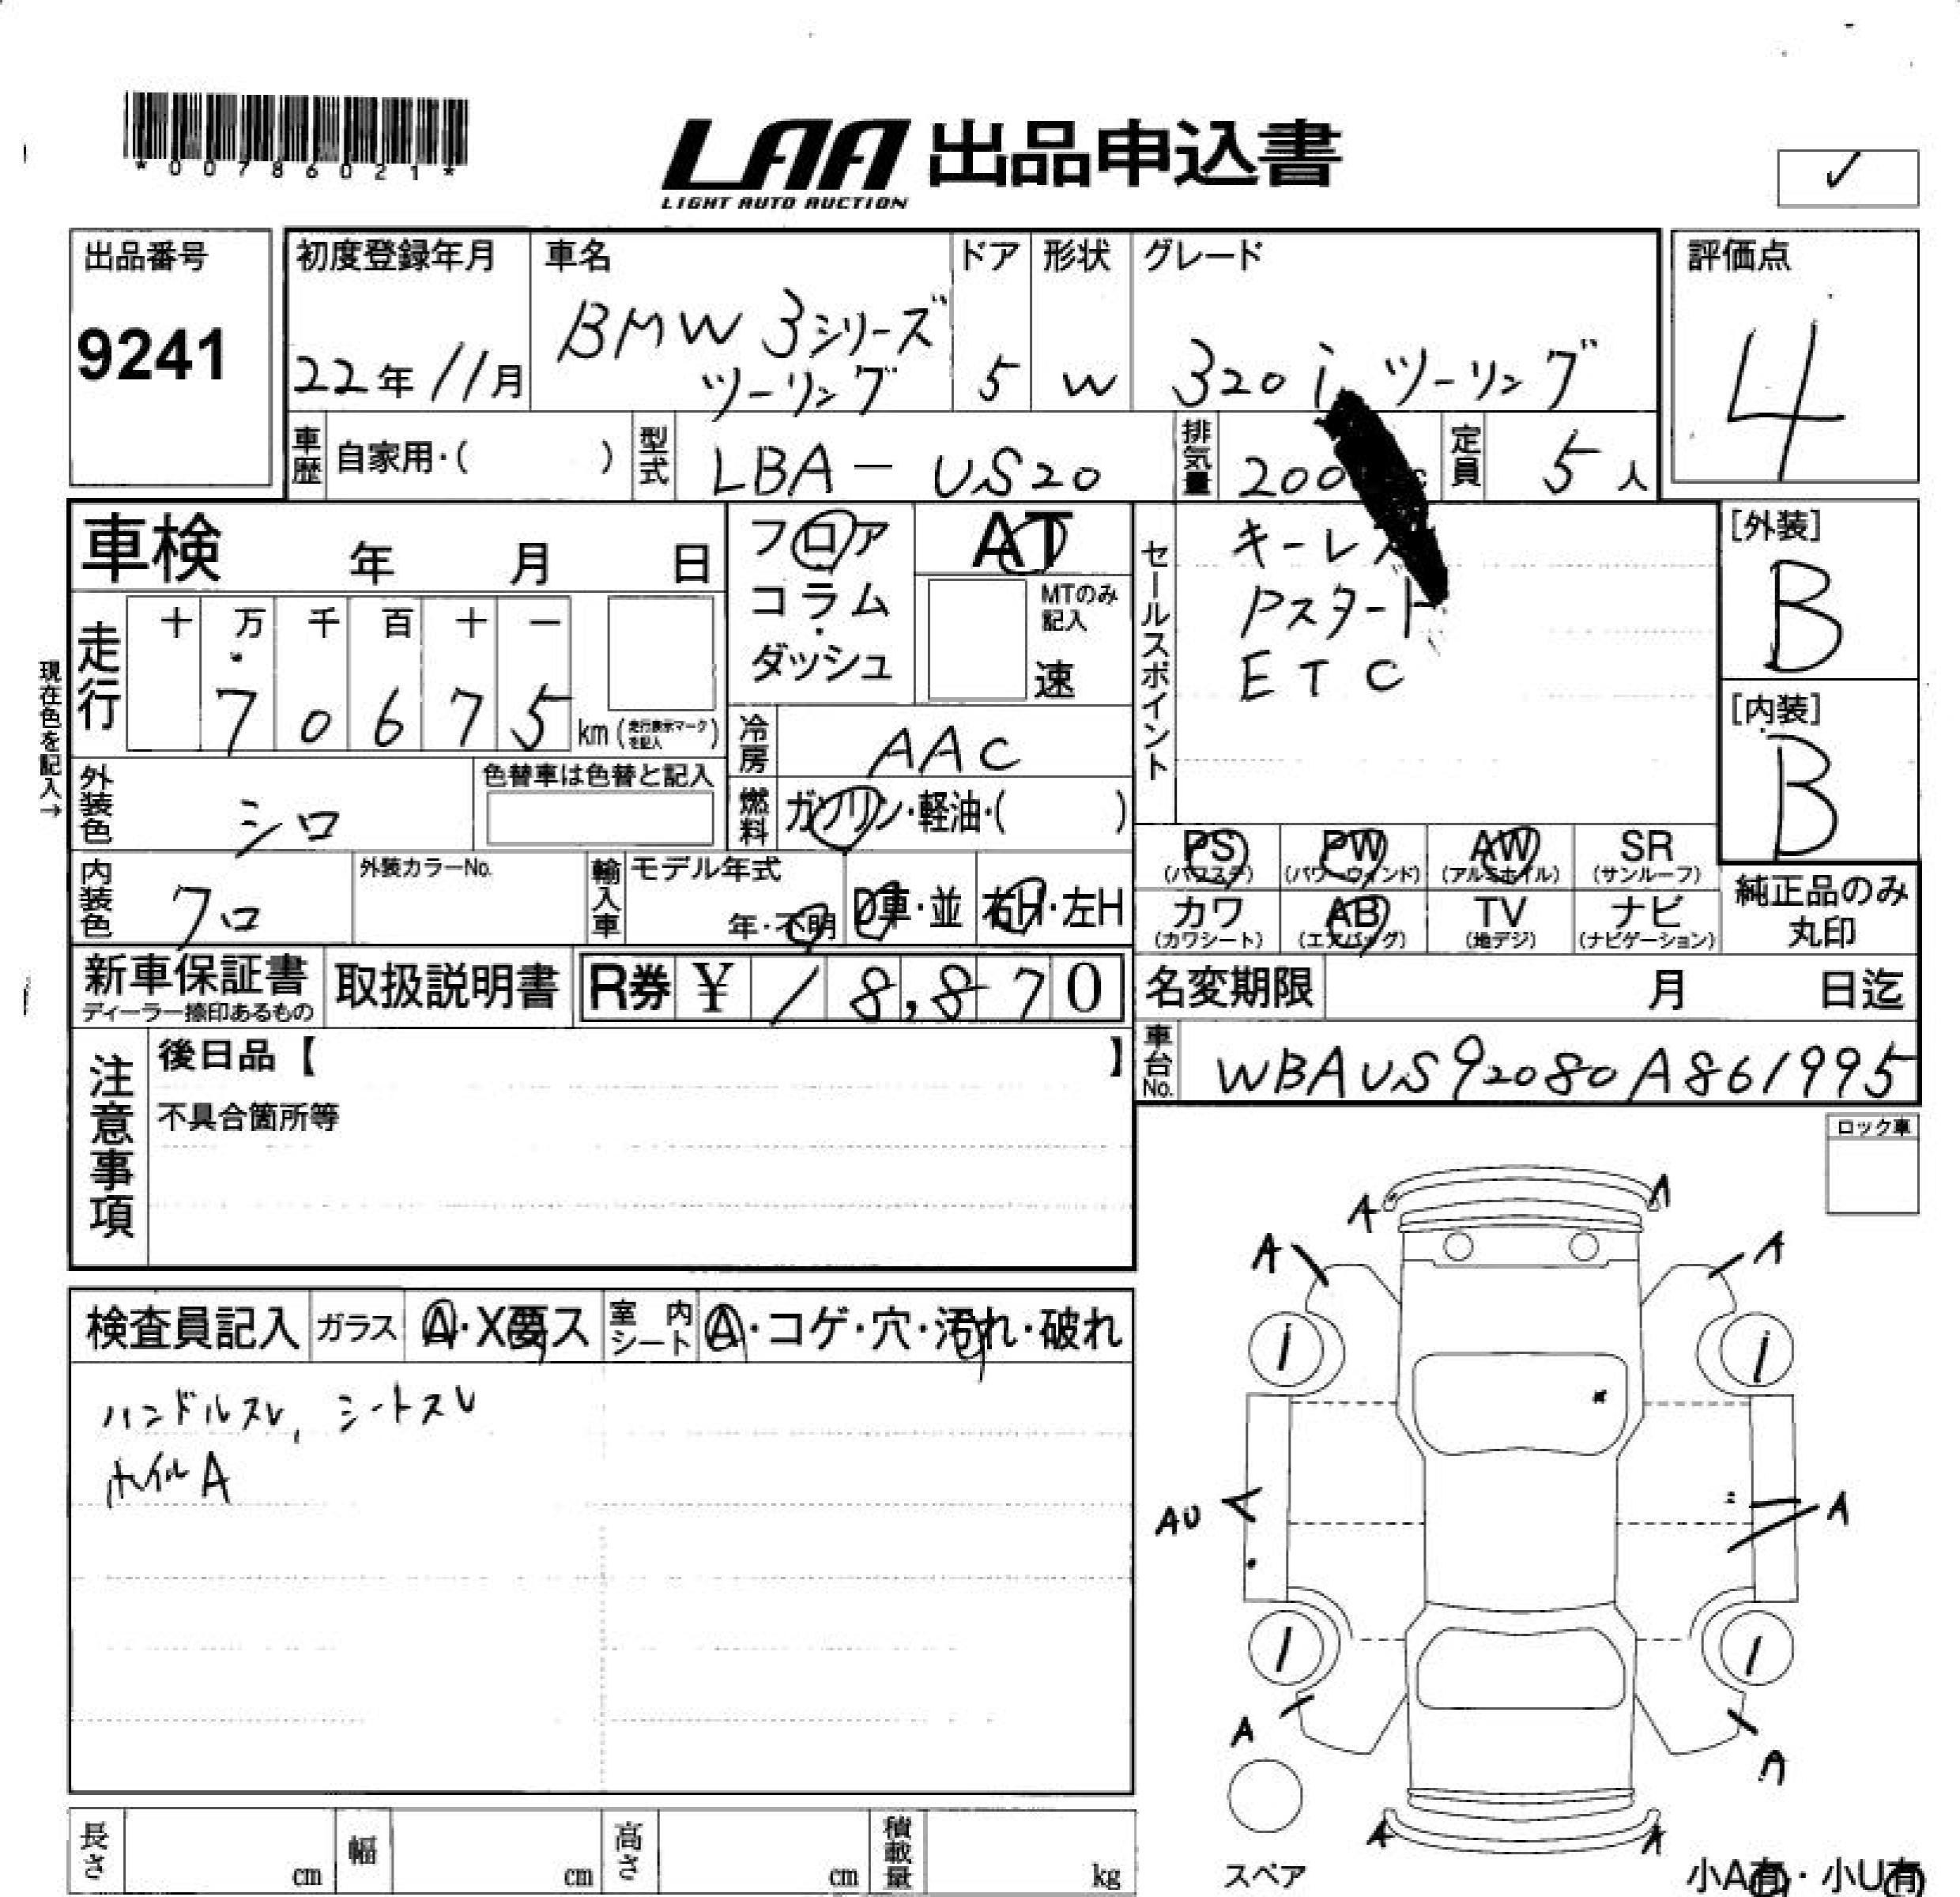 *00786021*
LAA 出品申込書
LIGHT AUTO AUCTION
✓
出品番号
9241
初度登録年月
22年11月
車名
BMW 3シリーズ
ツーリング
ドア
5
形状
W
グレード
320i ツーリング
評価点
4
車歴 自家用・( )
型式 LBA-US20
排気量 200
定員 5人
車検 年 月 日
フロア
コラム・
ダッシュ
AT
MTのみ
記入
速
セールスポイント
キーレス
Pスタート
ETC
[外装]
B
[内装]
B
現在色を記入→
走行
十 万 千 百 十 一
7 0 6 7 5 km (走行表示マークを記入)
冷房 AAC
燃料 ガソリン・軽油・( )
外装色 シロ
色替車は色替と記入
内装色 クロ
外装カラーNo.
輸入車
モデル年式
年・不明
D車・並
右H・左H
PS (パワステ)
PW (パワーウィンド)
AW (アルミホイル)
SR (サンルーフ)
カワ (カワシート)
AB (エアバッグ)
TV (地デジ)
ナビ (ナビゲーション)
純正品のみ
丸印
新車保証書
ディーラー捺印あるもの
取扱説明書
R券 ¥18,870
名変期限 月 日迄
車台No. WBAUS92080A861995
注意事項
後日品【 】
不具合箇所等
ロック車
検査員記入
ガラス A・X要ス
室内シート A・コゲ・穴・汚れ・破れ
ハンドルスレ、シートスレ
ホイルA
A A
A A
AU A
A A
A A
スペア
小A有・小U有
長さ cm
幅 cm
高さ cm
積載量 kg